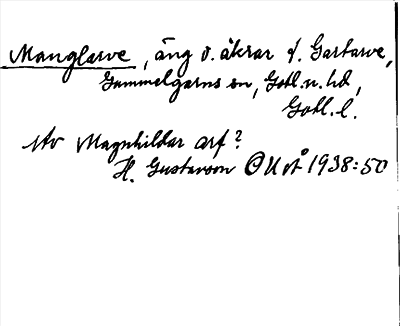 Manglarve, äng o. åkrar f. Gartarve,
Gammelgarns sn, Gotl. n. hd,
Gotl. l.
Av Magnhildar arf?
H. Gustavson OUÅ 1938:50